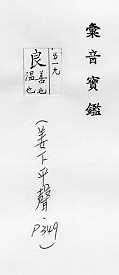 彙音寶鑑
出一九
良 善也 溫也
(姜下平聲, P349)